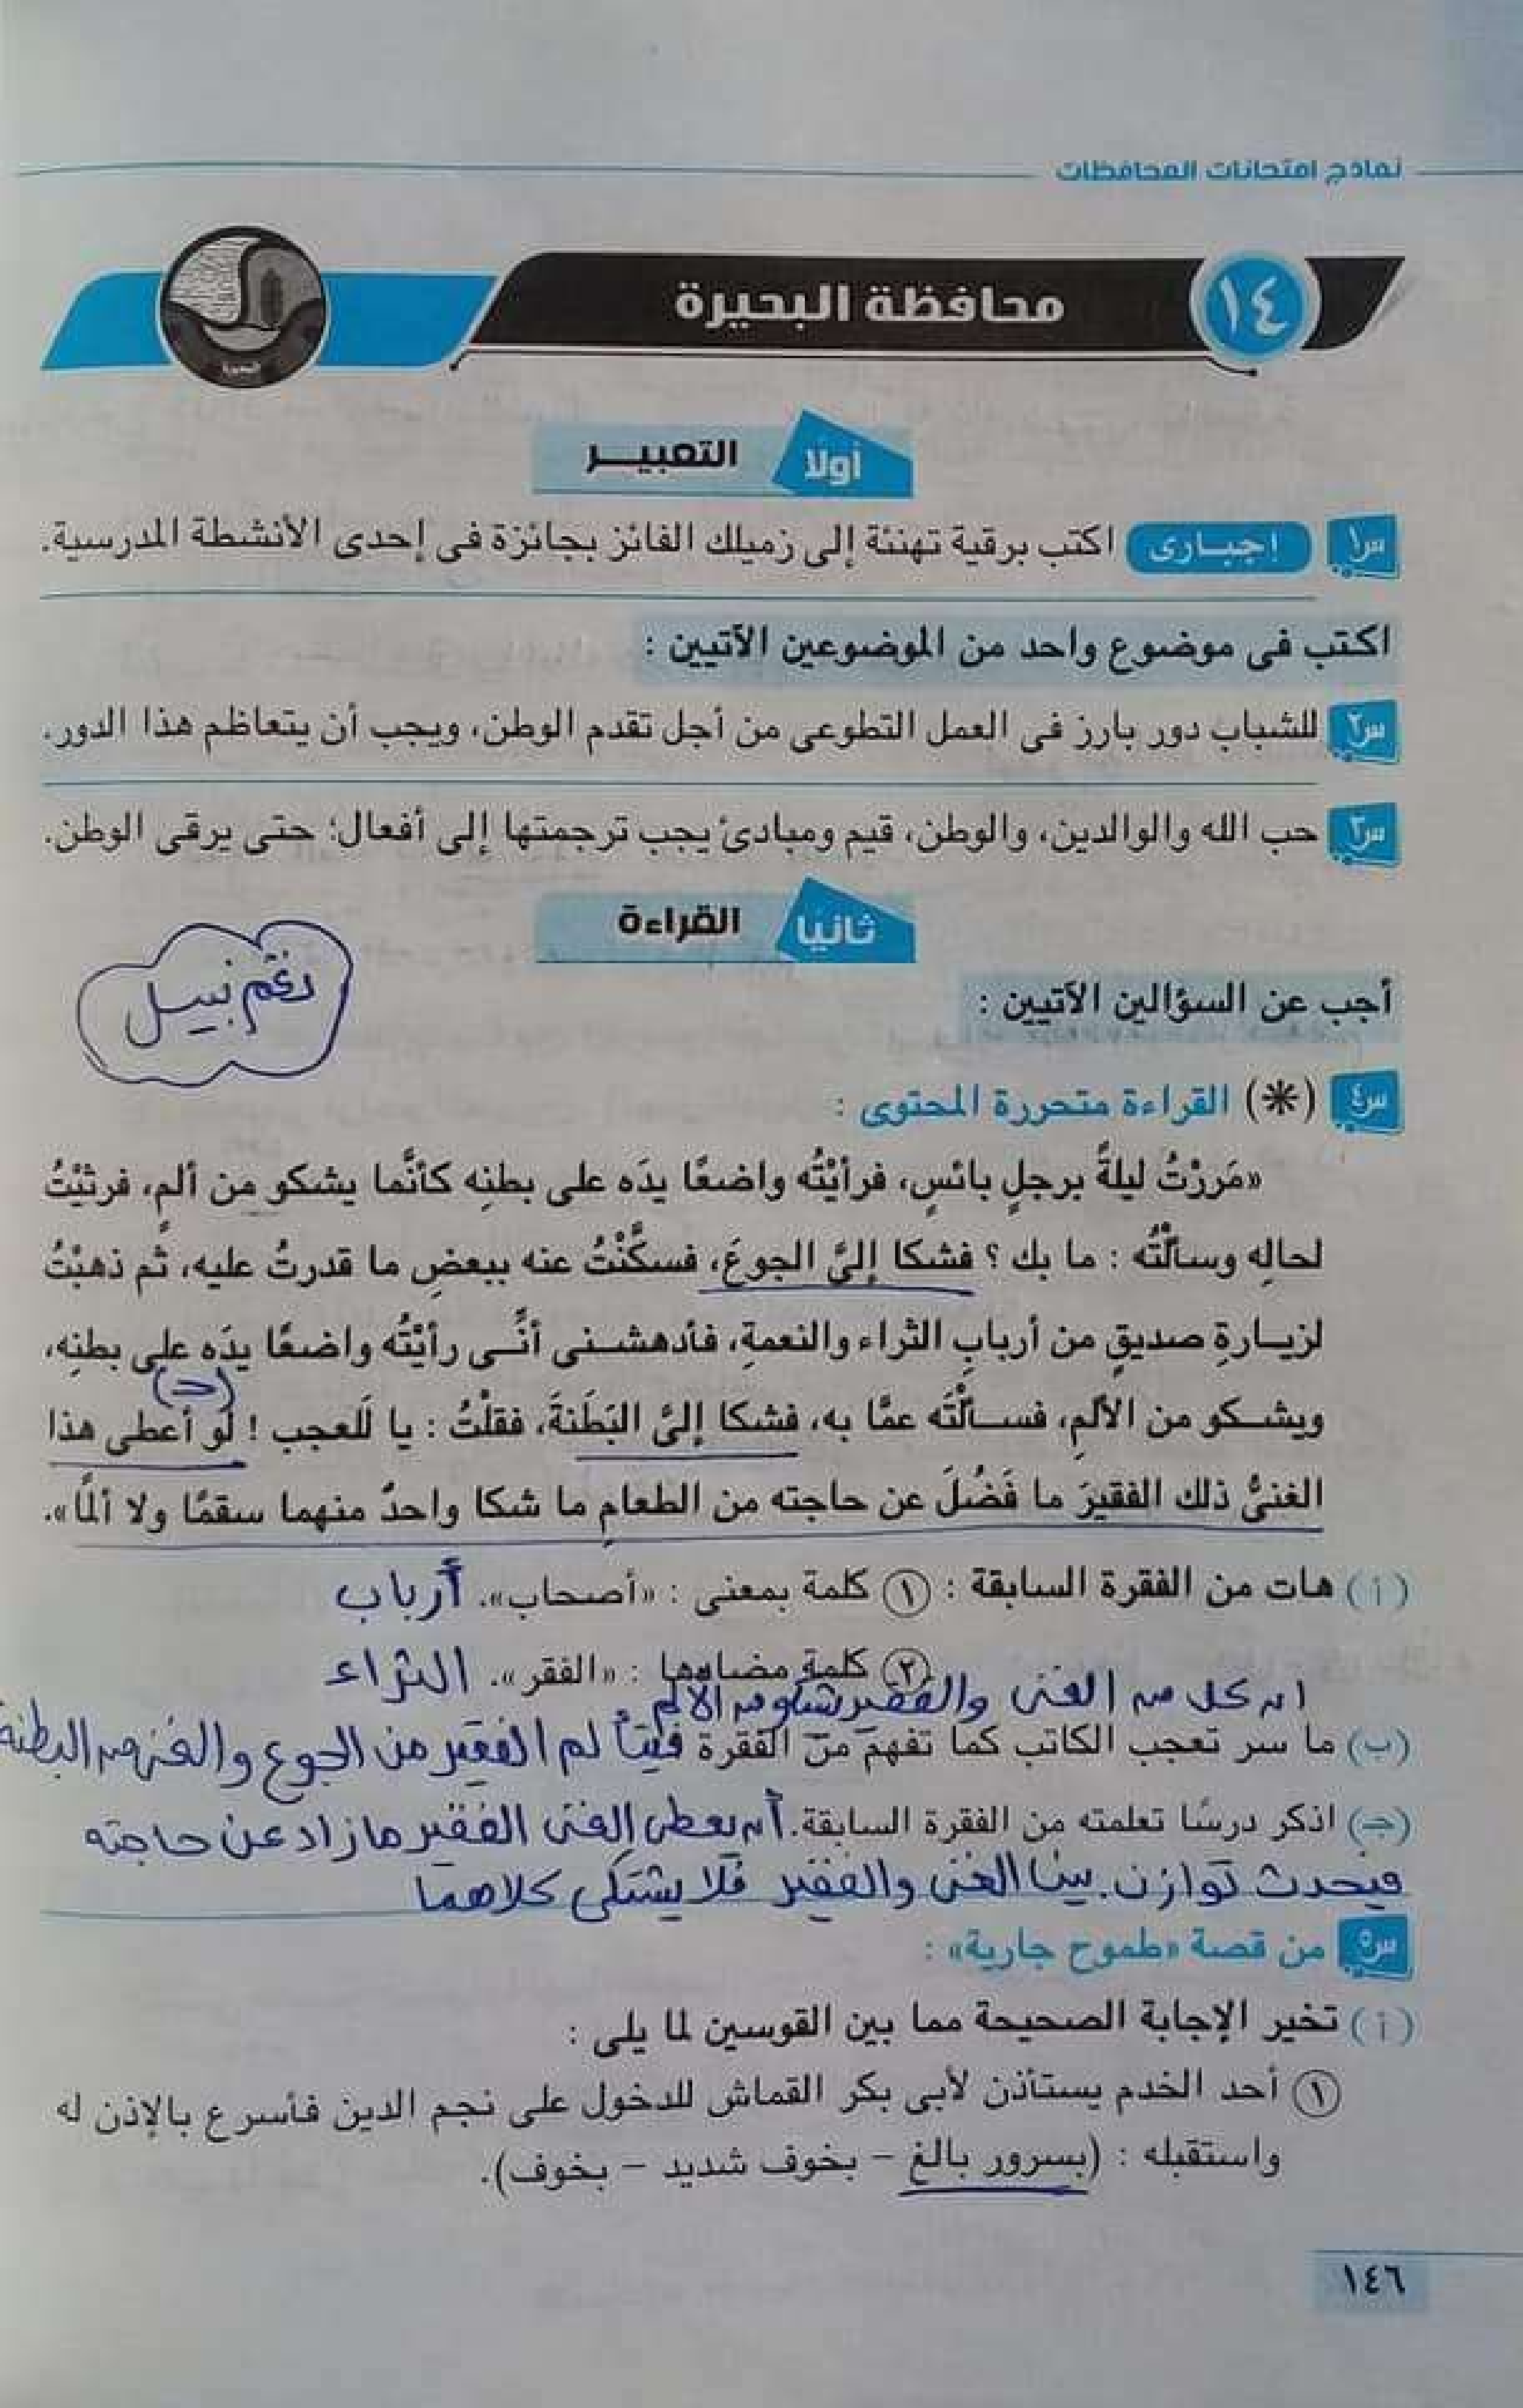 نماذج امتحانات المحافظات
١٤ محافظة البحيرة
البحيرة
أولا التعبير
س١ إجبارى اكتب برقية تهنئة إلى زميلك الفائز بجائزة فى إحدى الأنشطة المدرسية.
اكتب فى موضوع واحد من الموضوعين الآتيين :
س٢ للشباب دور بارز فى العمل التطوعى من أجل تقدم الوطن، ويجب أن يتعاظم هذا الدور.
س٣ حب الله والوالدين، والوطن، قيم ومبادئ يجب ترجمتها إلى أفعال؛ حتى يرقى الوطن.
ثانيا القراءة
نغم نبيل
أجب عن السؤالين الآتيين :
س٤ (*) القراءة متحررة المحتوى :
«مَررْتُ ليلةً برجلٍ بائسٍ، فرأيْتُه واضعًا يدَه على بطنِه كأنَّما يشكو من ألمٍ، فرثيْتُ
لحالِه وسألْتُه : ما بك ؟ فشكا إلىَّ الجوعَ، فسكَّنْتُ عنه ببعضِ ما قدرتُ عليه، ثم ذهبْتُ
لزيارةِ صديقٍ من أربابِ الثراء والنعمةِ، فأدهشنى أنِّى رأيْتُه واضعًا يدَه على بطنِه،
(حـ)
ويشكو من الألمِ، فسألْتَه عمَّا به، فشكا إلىَّ البَطَنةَ، فقلْتُ : يا لَلعجب ! لو أعطى هذا
الغنىُّ ذلك الفقيرَ ما فَضُلَ عن حاجته من الطعامِ ما شكا واحدٌ منهما سقمًا ولا ألمًا».
(أ) هات من الفقرة السابقة : ١ كلمة بمعنى : «أصحاب». أرباب
٢ كلمة مضادها : «الفقر». الثراء
ان كل من الغنى والفقير يشكو من الألم
(ب) ما سر تعجب الكاتب كما تفهم من الفقرة فيتألم الفقير من الجوع والغنى من البطنة
(جـ) اذكر درسًا تعلمته من الفقرة السابقة. أن يعطى الغنى الفقير ما زاد عن حاجته
فيحدث توازن بين الغنى والفقير فلا يشتكى كلاهما
س٥ من قصة «طموح جارية» :
(أ) تخير الإجابة الصحيحة مما بين القوسين لما يلى :
١ أحد الخدم يستأذن لأبى بكر القماش للدخول على نجم الدين فأسرع بالإذن له
واستقبله : (بسرور بالغ – بخوف شديد – بخوف).
١٤٦